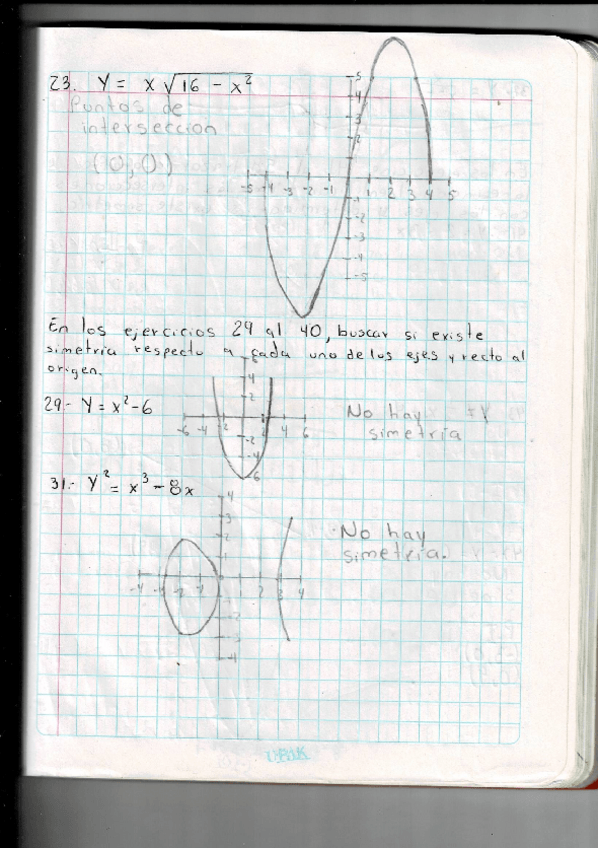 23. Y = x √16 - x²
Puntos de
interseccion
(0,0)
5
4
3
2
-5 -4 -3 -2 -1 1 2 3 4 5
-1
-2
-3
-4
-5
En los ejercicios 29 al 40, buscar si existe
simetria respecto a cada uno de los ejes y recto al
origen.
29.- Y = x² - 6
4
2
-6 -4 2 4 6
-2
-4
-6
No hay
simetria
31.- Y² = x³ - 8x
4
3
2
1
-4 -2 1 2 3 4
-2
-3
-4
No hay
simetria.